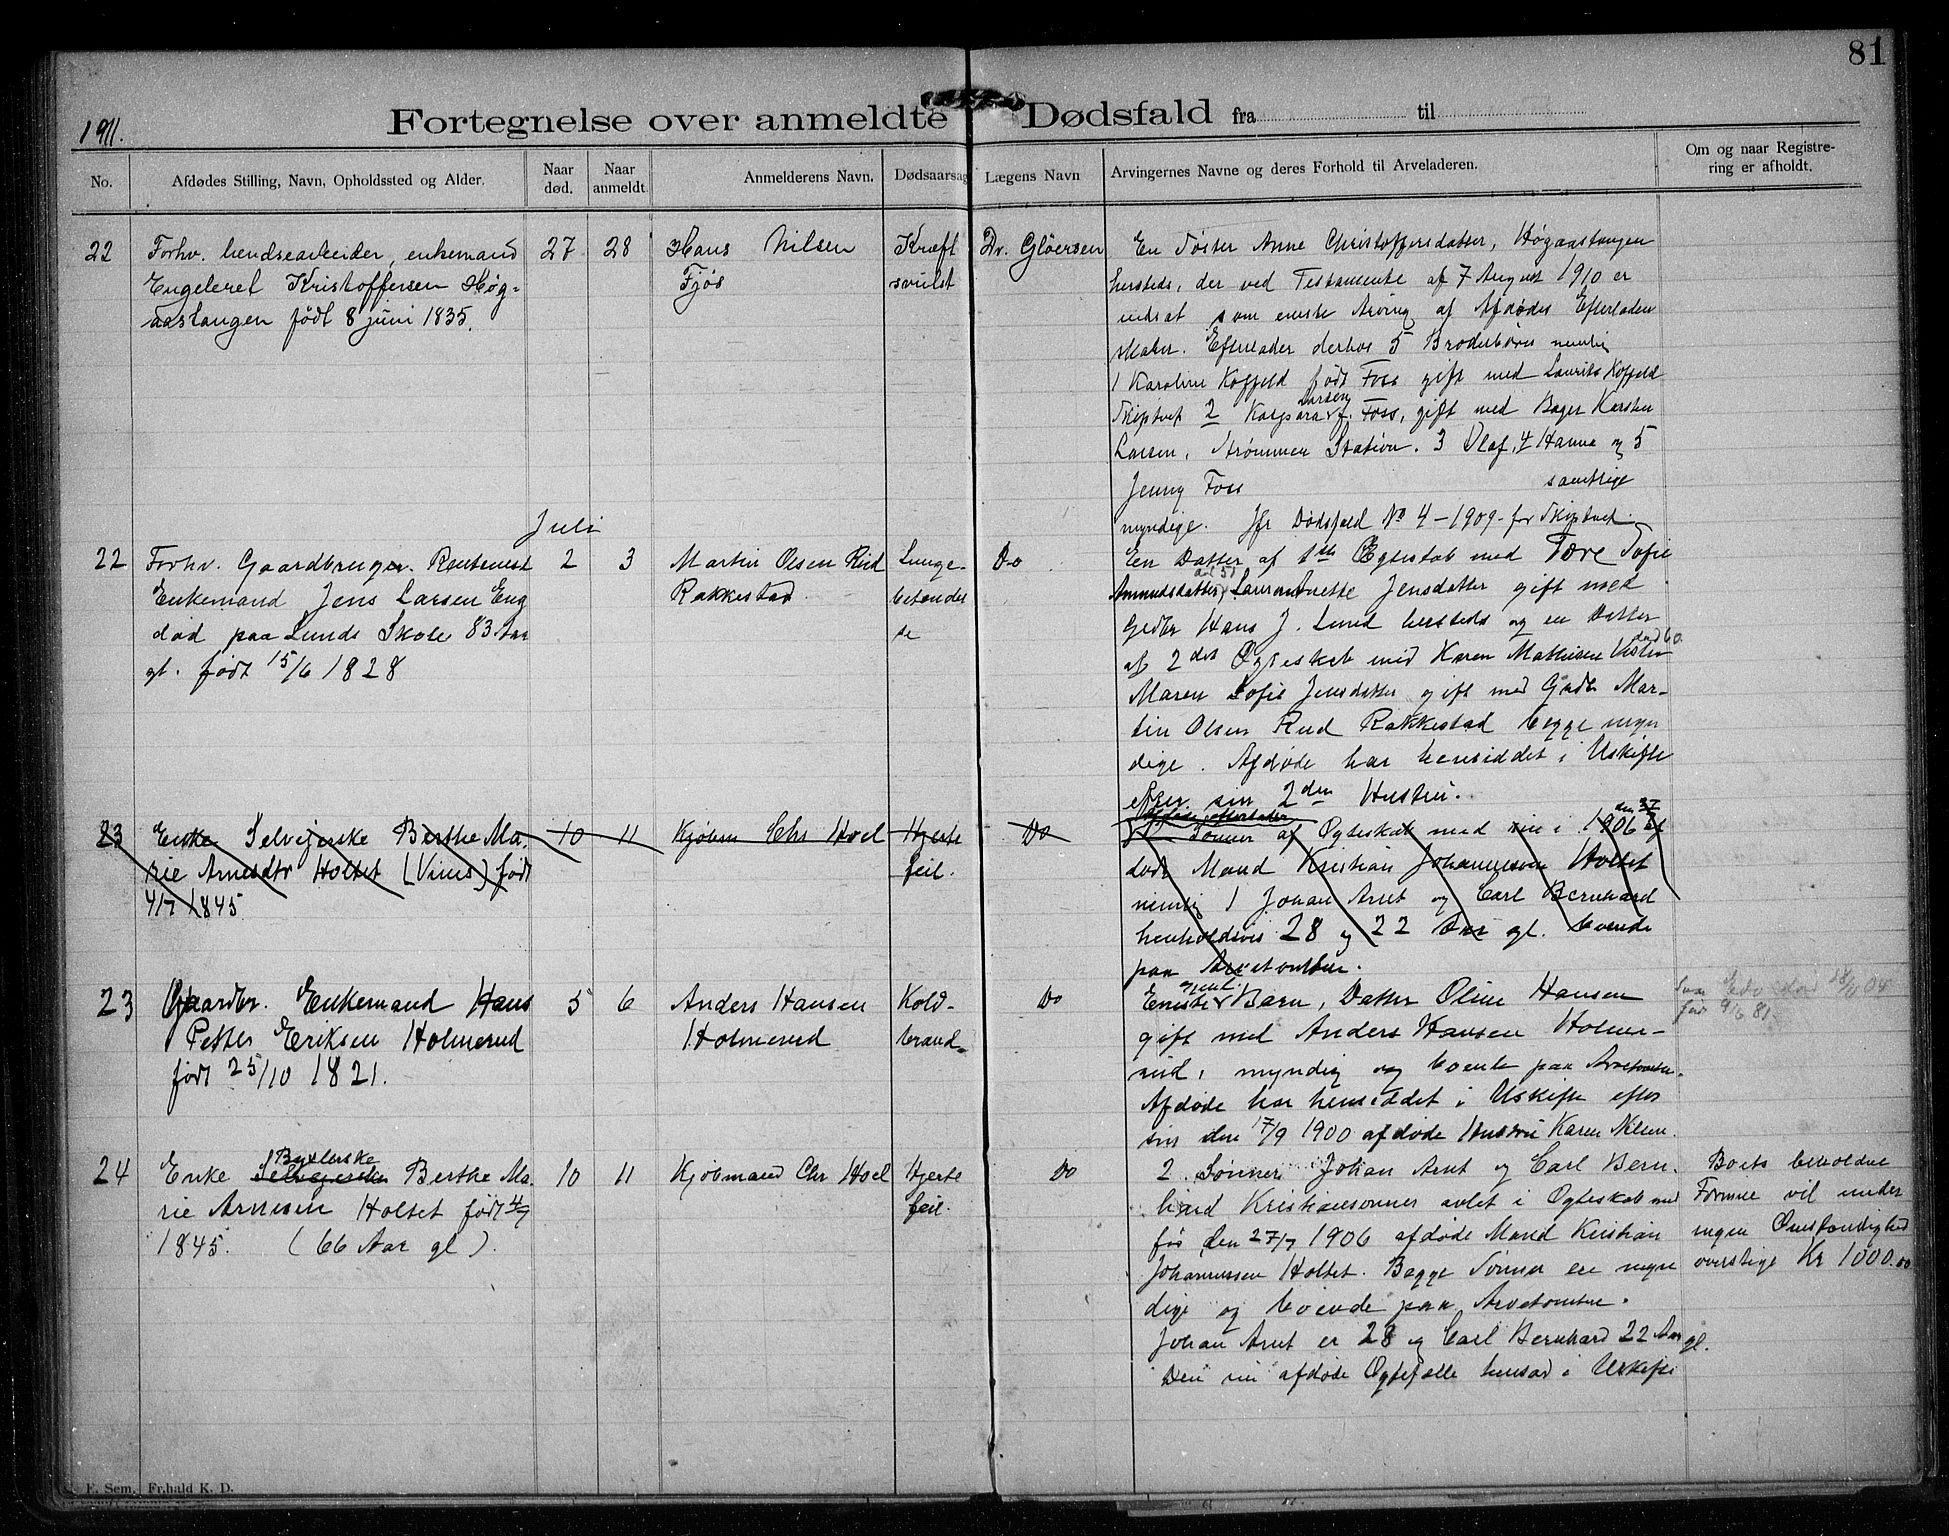 81
1911.
Fortegnelse over anmeldte Dødsfald fra til
No.
Afdødes Stilling, Navn, Opholdssted og Alder.
Naar død.
Naar anmeldt.
Anmelderens Navn.
Dødsaarsag
Lægens Navn
Arvingernes Navne og deres Forhold til Arveladeren.
Om og naar Registre-
ring er afholdt.
22
Forhv. enkemand
Kristoffersen Høg-
aastangen født 8 juni 1835.
27
28
Hans Nilsen
Fjøs
Kræft
svulst
Dr. Gløersen
En Søster Anne Christoffersdatter, Høgaastangen
hersteds, der ved Testamente af 7 August 1910 er
indsat som eneste Arving af Afdødes Efterladen
skaber. Efterlader derhos 5 Broderbørn nemlig
1 Karoline Koffeld født Foss gift med Laurits Koffeld
Skiptvet 2 Larsen f. Foss, gift med Bager Karsten
Larsen, Strømmen Station. 3 Olaf, 4 Hanna og 5
Jenny Foss samtlige
myndige. Jfr Dødsfald No 4 - 1909 for Skiptvet.
Juli
22
Forhv. Gaardbruger. Rentenist
Enkemand Jens Larsen Eng
død paa Lunds Skole 83 Aar
gl. født 15/6 1828
2
3
Martin Olsen Rud
Rakkestad
Lunge-
betændel
se
Do
En Datter af 1ste Egteskab med Tore Sofie
Amundsdatter, Jensdatter gift med
Grdbr Hans J. Lund hersteds og en Datter
af 2det Egteskab med Karen Mathisen
Maren Sofie Jensdatter gift med Grdbr Mar-
tin Olsen Rud Rakkestad begge myn
dige. Afdøde har hensiddet i Uskifte
efter sin 2den Hustru.
23
Enke Selveierske Berthe Ma-
rie Arnesdtr Holtet (Viins) født
4/7 1845
10
11
Kjøbm Chr Hoel
Hjerte
feil.
Do
2 Sønner af Egteskab med sin i 1906 af
døde Mand Kristian Johannessen Holtet
nemlig 1 Johan Arnt og Carl Bernhard
henholdsvis 28 og 22 Aar gl. boende
paa Arvetomten.
23
Gaardbr. Enkemand Hans
Petter Eriksen Holmerud
født 25/10 1821.
5
6
Anders Hansen
Holmerud
Kold-
brand.
Do
Eneste Barn, Datter Oline Hansen
gift med Anders Hansen Holme-
rud, myndig og boende paa Arvetomten.
Afdøde har hensiddet i Uskifte efter
sin den 17/9 1900 afdøde Hustru Karen Nilsen.
24
Byxlerske
Enke Selveierske Berthe Ma-
rie Arnesen Holtet født 4/7
1845. (66 Aar gl).
10
11
Kjøbmand Chr Hoel
Hjerte
feil.
Do
2 Sønner Johan Arnt og Carl Bern
hard Kristiansønner avlet i Egteskab med
før den 27/7 1906 afdøde Mand Kristian
Johannessen Holtet. Begge Sønner ere myn
dige og boende paa Arvetomten.
Johan Arnt er 28 og Carl Bernhard 22 Aar gl.
Den nu afdøde Egtefælle hensad i Uskifte
Boets beholdne
Formue vil under
ingen Omstændighed
overstige Kr 1000.00
E. Sem, Fr.hald K. D.